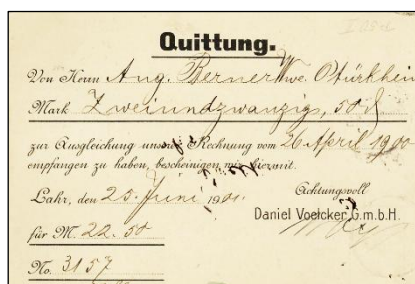 Quittung.
Von Herrn Aug. Berner Wwe. Otürkheim
Mark Zweiundzwanzig, 50 ₰
zur Ausgleichung unserer Rechnung vom 26 April 1900
empfangen zu haben, bescheinigen wir hiermit.
Lahr, den 25. Juni 1901.
Achtungsvoll
Daniel Voelcker G.m.b.H.
für M. 22.50
No. 3157